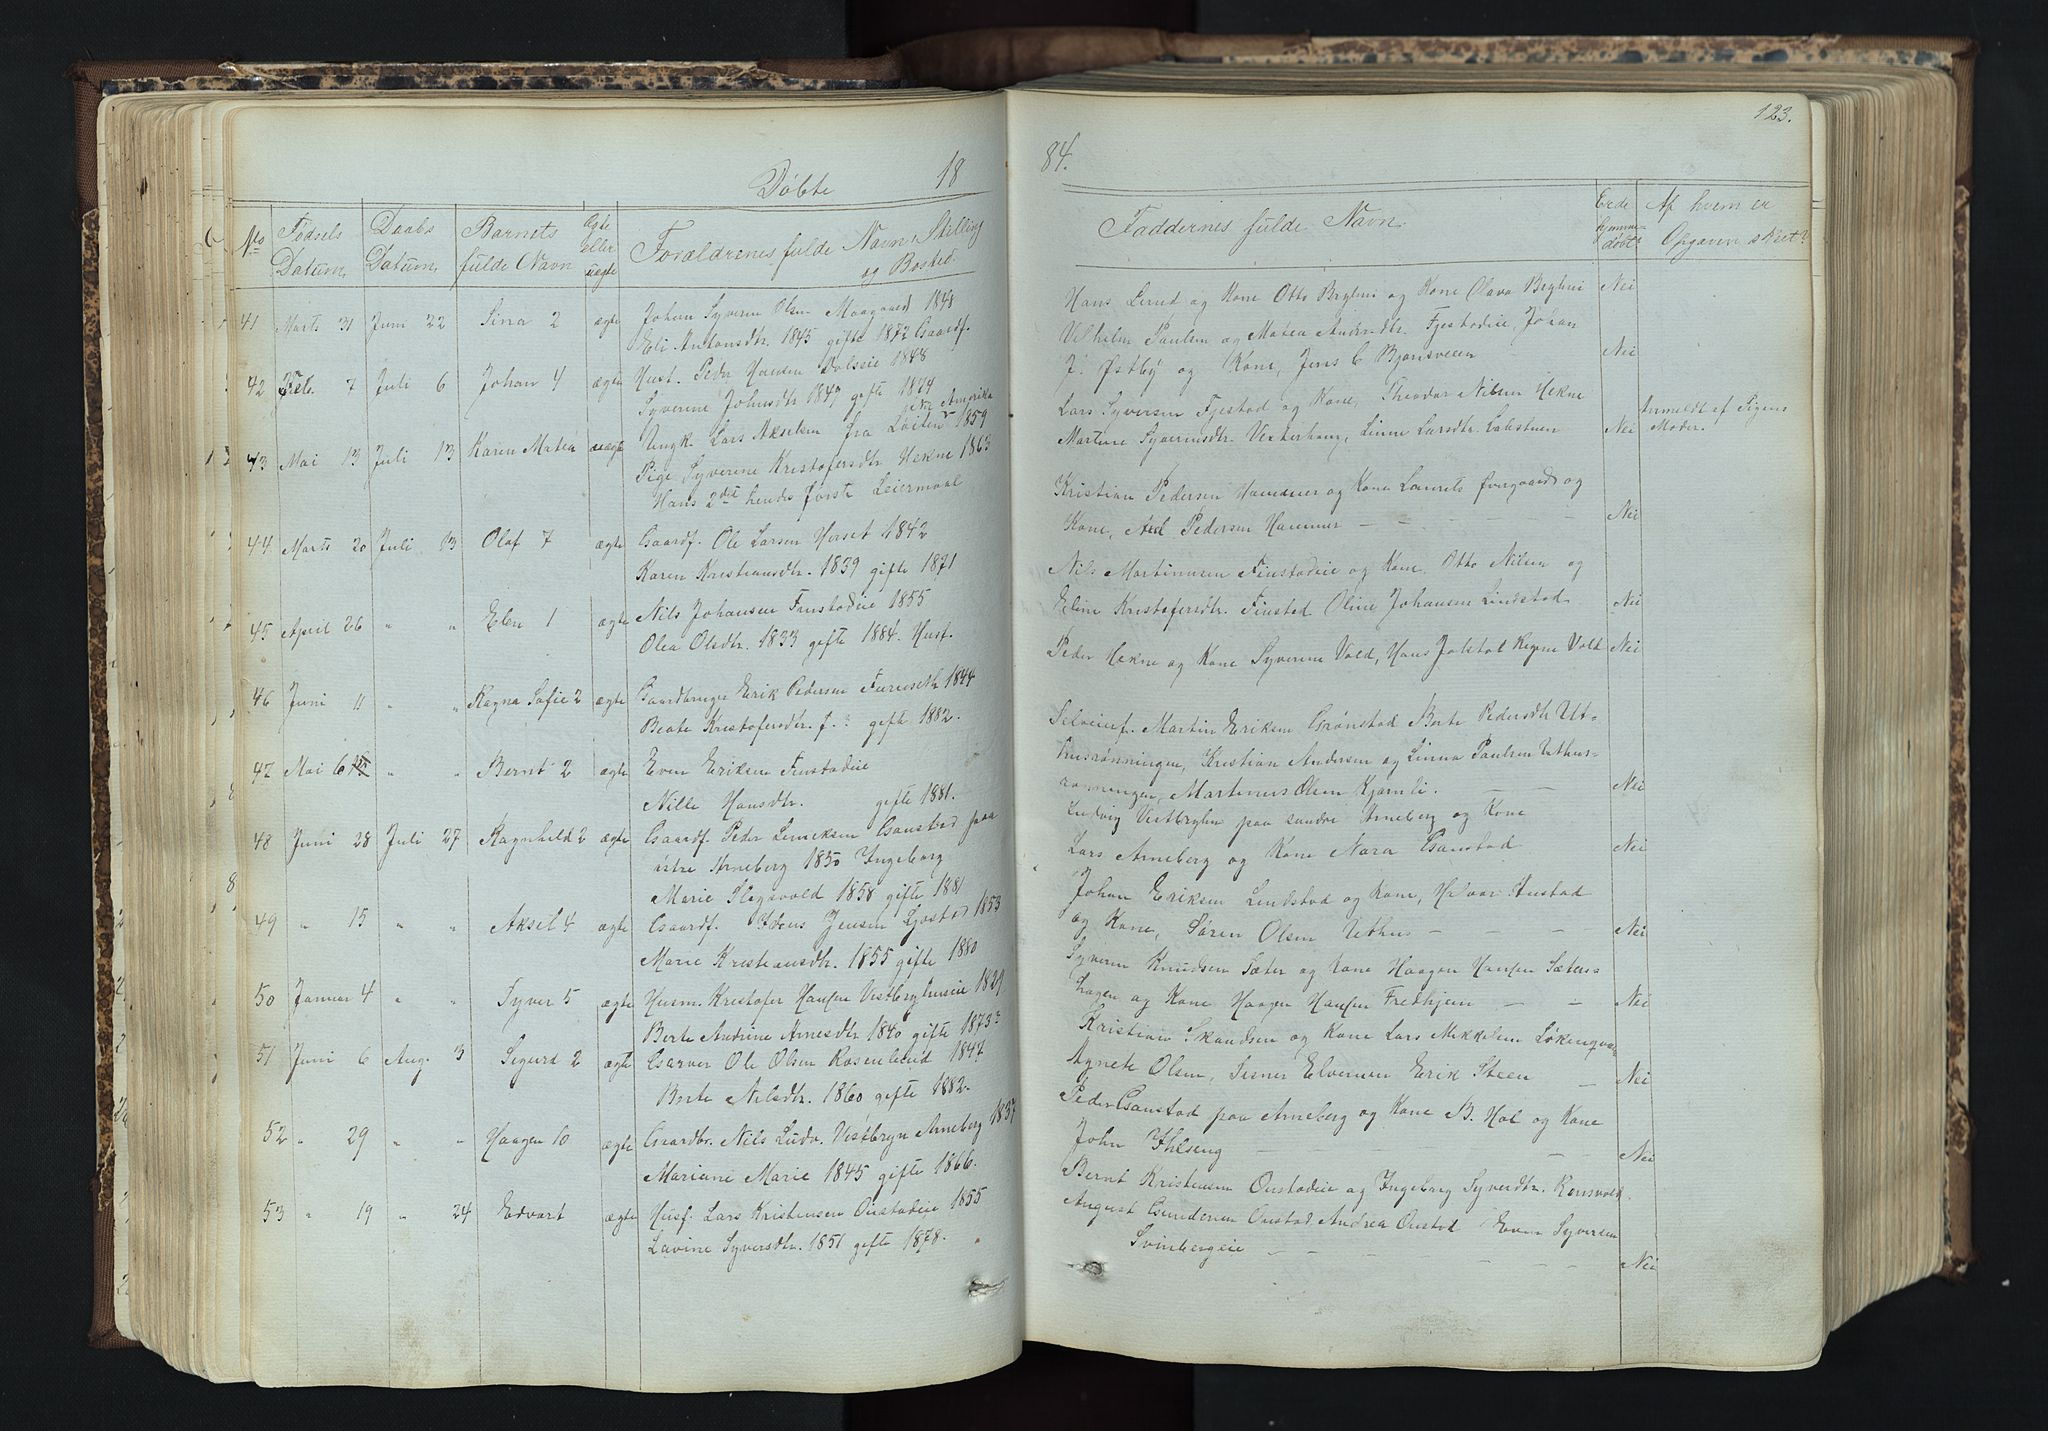 123.
Döbte 18
84.
No Fødsels Datum. Daabs Datum. Barnets fulde Navn ægte eller uægte Forældrenes fulde Navn, Stelling og Bosted.
Faddernes fulde Navn. Er de hjemme døbt? Af hvem er Opgaven skeet?
41 Marts 31 Juni 22 Sina 2 ægte Johan Syveren Olsen Maagaard
Eli Antonsdtr. 1845 gifte 1872 Gaardf.
42 7 Juli 6 Johan 4 ægte Hust. Peder Hansen 1848
Syverine Johnsdtr 1847 gifte 1874
i Amerika
43 Mai 13 Juli 13 Karen Matea uægte Ungk. Lars Akselsen fra Løiten 1859
Pige Syverine Kristofersdtr Hekne 1863
Hans 2det hendes første Leiermaal
44 Marts 20 Juli 13 Olaf 7 ægte Gaardf. Ole Larsen Horset 1842
Karen Kristiansdtr. 1839 gifte 1871
45 April 26 " " Elen 1 ægte Nils Johansen Finstadeie 1855
Olea Olsdtr. 1833 gifte 1884. Husf.
46 Juni 11 " " Ragna Sofie 2 ægte Gaardbruger Erik Pedersen Furuseth 1844
Beate Kristofersdtr. f. ? gifte 1882.
47 Mai 6 " " Bernt 2 ægte Even Eriksen Finstadeie
Nille Hansdtr. gifte 1881.
48 Juni 28 Juli 27 Ragnhild 2 ægte Gaardf. Peder Gaustad paa
østre Arneberg 1850 Ingeborg
Marie 1858 gifte 1881
49 " 15 " " Aksel 4 ægte Gaardf. Jensen 1853
Marie Kristiansdtr. 1855 gifte 1880
50 Januar 4 " " Syver 5 ægte Husm. Kristofer Hansen Vestberghuseie 1839
Berte Andrine Arnesdtr 1840 gifte 1873?
51 Juni 6 Aug. 3 Sigurd 2 ægte Garver Ole Olsen Rosenlund 1847
Berte Nilsdtr. 1860 gifte 1882.
52 " 29 " " Haagen 10 ægte Gaardbr. Nils Ludv. Vestbryn Arneberg 1837
Mariane Marie 1845 gifte 1866.
53 " 19 " 24 Edvart ægte Husf. Lars Kristensen Oustadeie 1855
Lovine Syversdtr. 1851 gifte 1878.
Hans Lerud og Kone Otto Bryhni og Kone Olava Bryhni Nei
Vilhelm Paulsen og Matea Andersdtr. Fjestadeie, Johan
J. Østby og Kone, Jens C Bjørnsveen Nei
Lars Syversen Fjestad og Kone, Theodor Nilsen Hekne
Martine Syverinsdtr. Vesterhaug, Linne Larsdtr. Nei
Anmeldt af Pigens
Moder.
Kristian Pedersen Hammer og Kone Laurits og
Kone, Axel Pedersen Hammer Nei
Nils Martinusen Finstadeie og Kone. Otto Nilsen og
Eline Kristofersdtr. Finstad Oline Johansen Lindstad Nei
Peder Hekne og Kone Syverine Vold, Hans Kone Vold Nei
Selveierf. Martin Eriksen Grønstad Berte Pedersdtr Ut-
husrønningen, Kristian Andersen og Linna Paulsen Uthus-
rønningen, Martinus Olsen Kjærnli. Nei
Ludvig Vestbryhn paa søndre Arneberg og Kone
Lars Arneberg og Kone Nora Gaustad Nei
Johan Eriksen Lindstad og Kone, Halvor Anstad
og Kone, Søren Olsen Uthus Nei
Syveren Knudsen Sæter og Kone Haagen Hansen Sæters-
hagen og Kone Haagen Hansen Frethjem Nei
Skandsen og Kone Lars Mikkelsen
Agnete Olsen, Elvernen Erik Steen Nei
Peder Gaustad paa Arneberg og Kone B. Hol og Kone
John Ihlseng Nei
Bernt Kristensen Oustadeie og Ingebrg Syversdtr. Rensvold.
August Gundersen Oustad. Andrea Oustad Even Syversen
Svinbergeie Nei